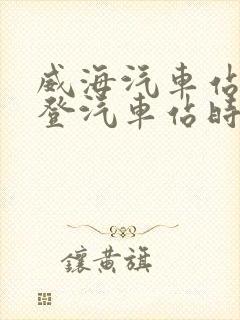 威海汽車佔
登汽車佔時
鑲黃旗